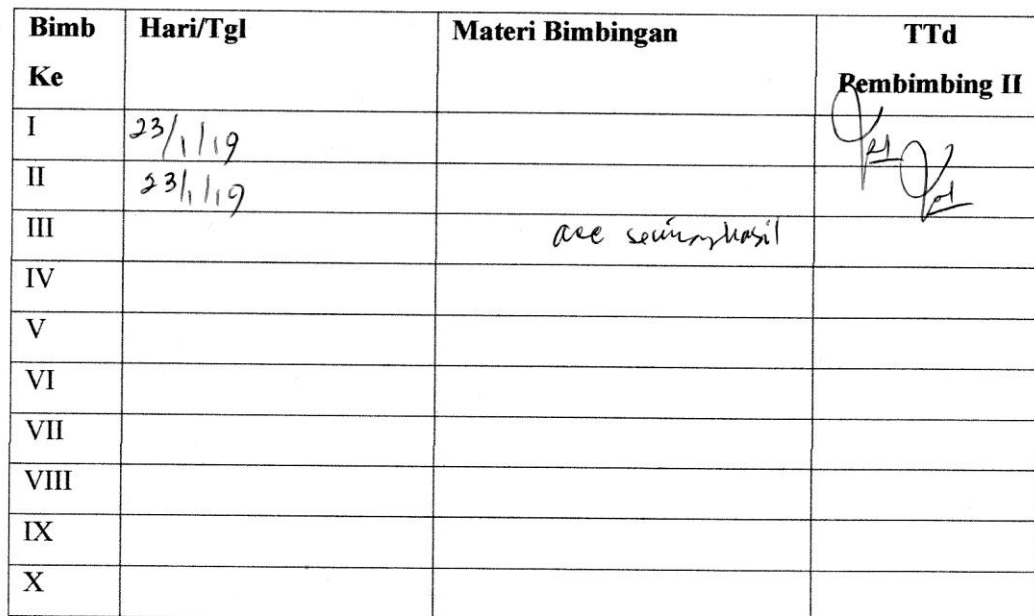 Bimb Ke Hari/Tgl Materi Bimbingan TTd Pembimbing II
I 23/1/19
II 23/1/19
III acc seminar hasil
IV
V
VI
VII
VIII
IX
X